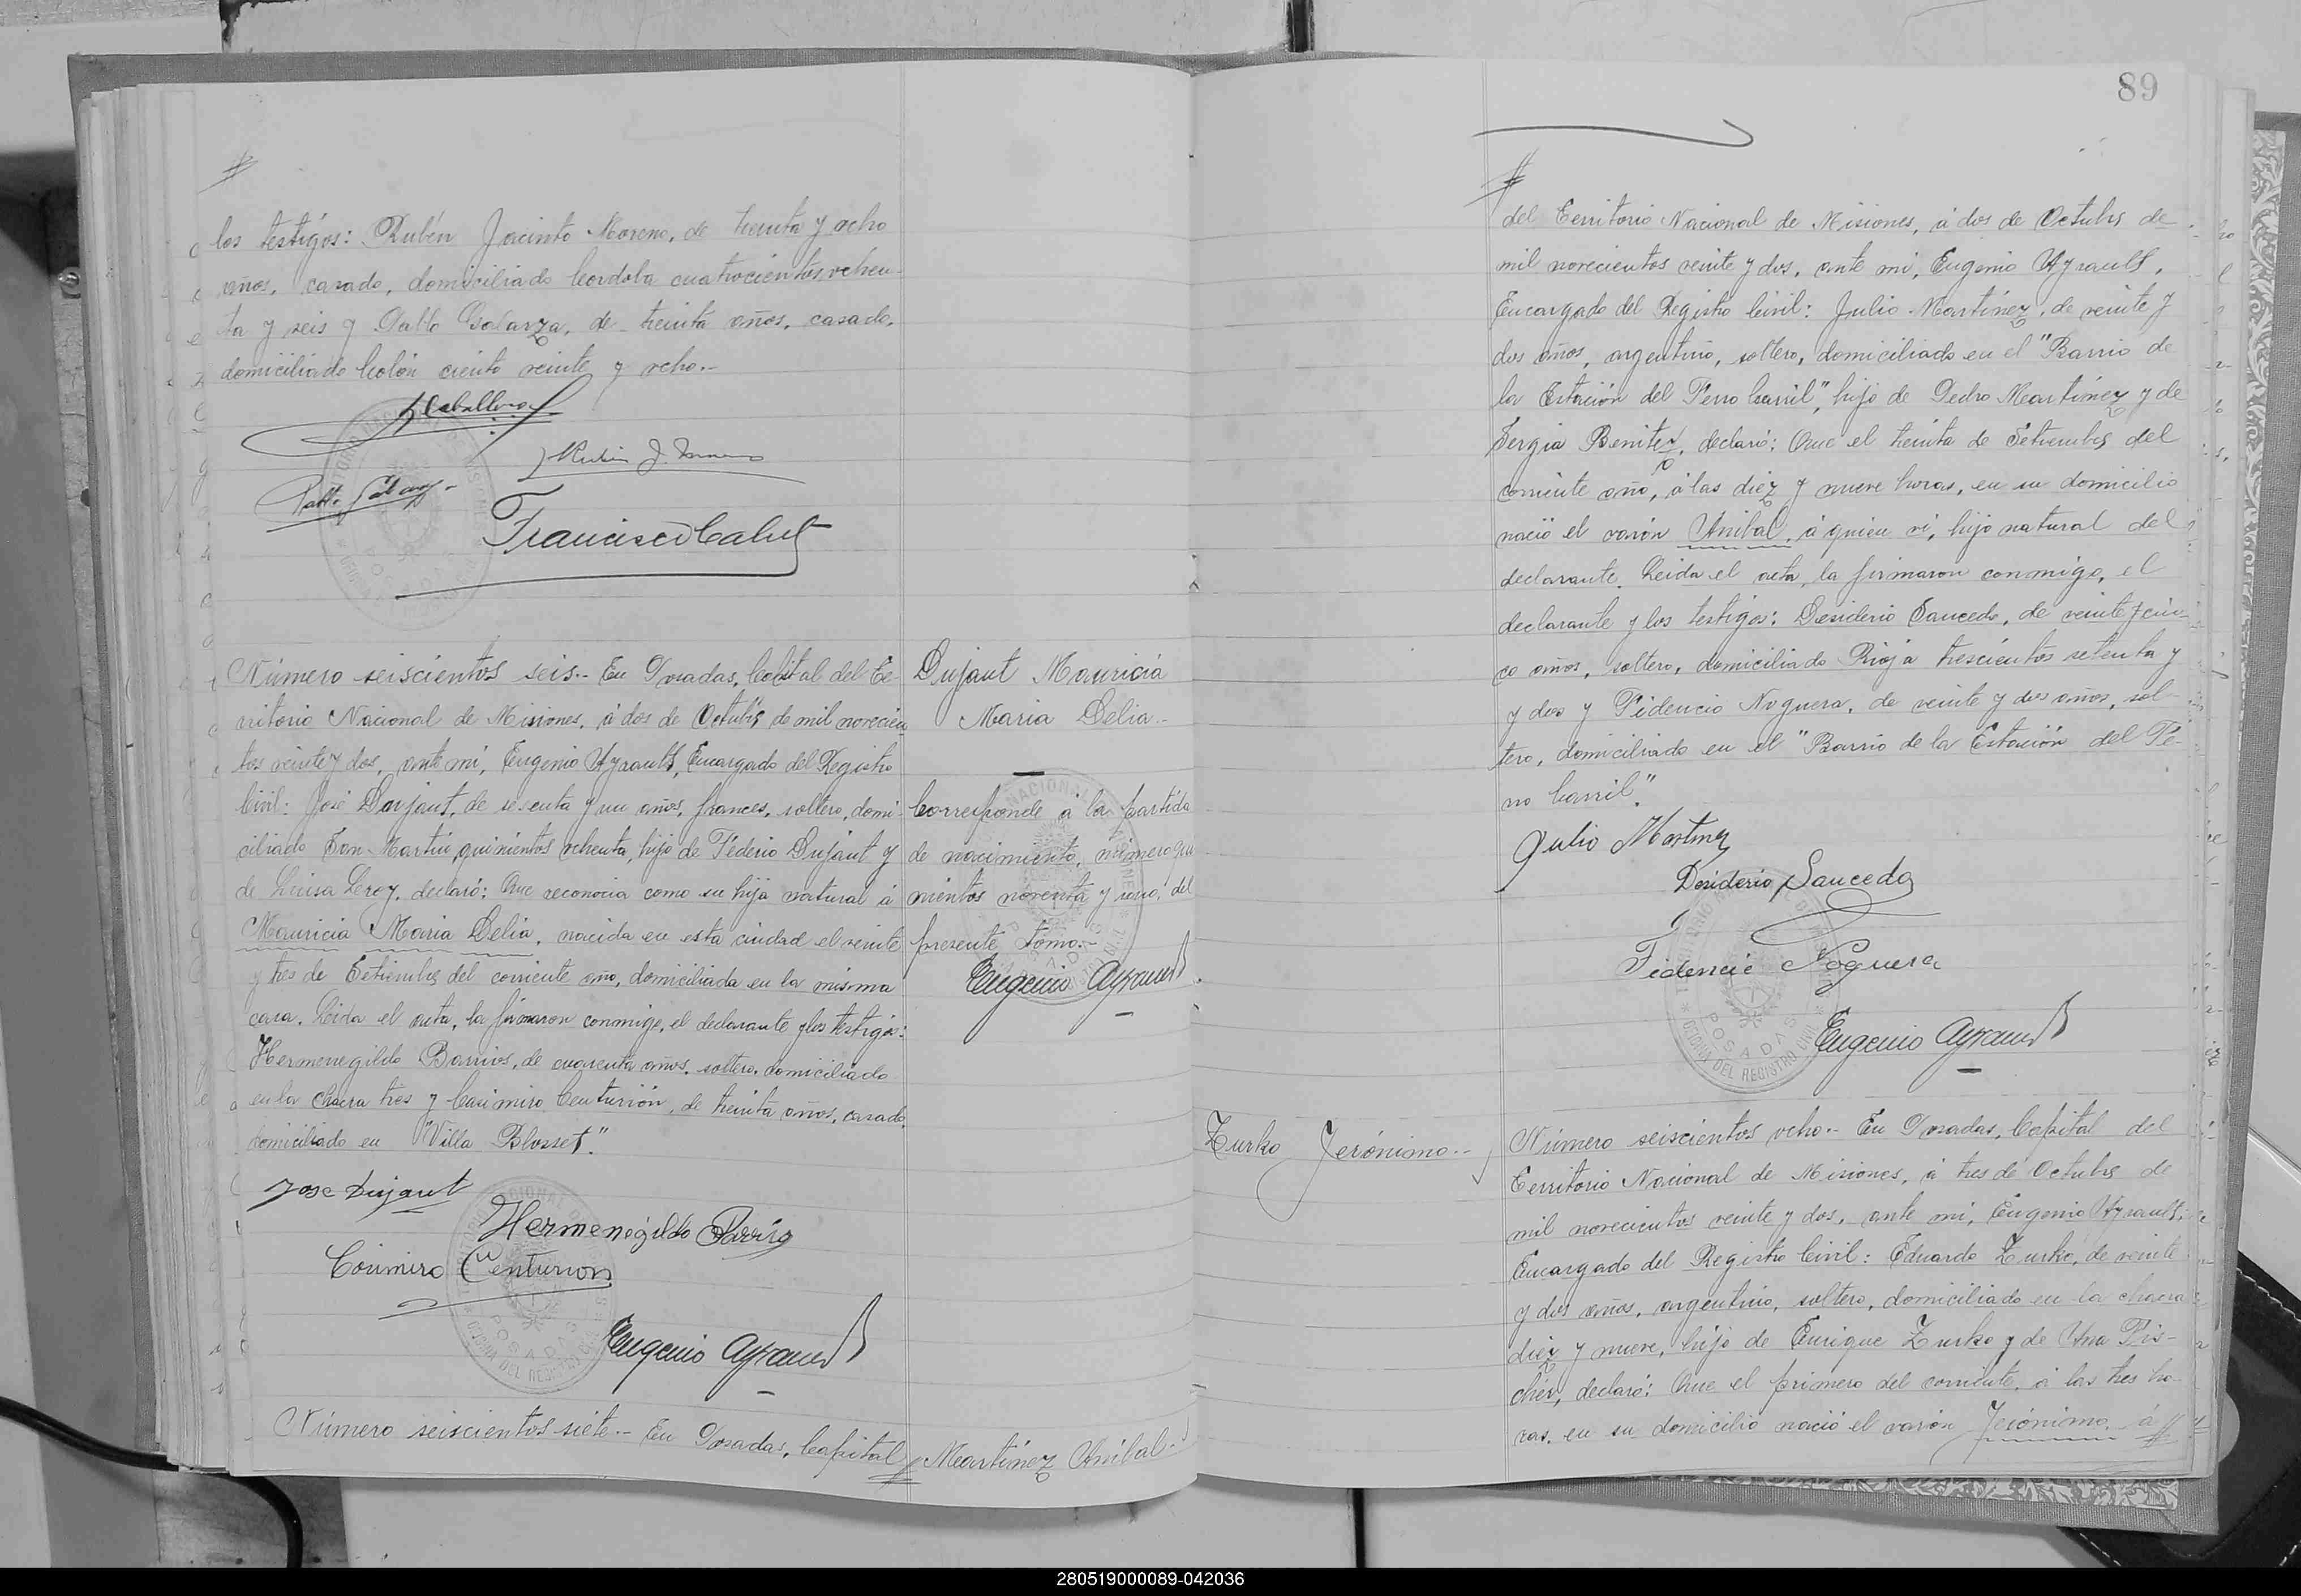 los testigos: Rubén Jacinto Moreno, de treinta y ocho
años, casado, domiciliado Cordoba cuatrocientos ochen-
ta y seis y Pablo Galarza, de treinta años, casado,
domiciliado Colón ciento veinte y ocho.-
Caballero
Rubén J. Moreno
Pablo Galarza
Francisco
Número seiscientos seis.- En Posadas, Capital del Te-
rritorio Nacional de Misiones, á dos de Octubre de mil novecien
tos veinte y dos, ante mi, Eugenio Ayrault, Encargado del Registro
Civil: José Dujaut, de sesenta y un años, frances, soltero, domi-
ciliado San Martin quinientos ochenta, hijo de Féderio Dujaut y
de Luisa Leroy, declaró: Que reconocia como su hija natural á
Mauricia Maria Delia, nacida en esta ciudad el veinte
y tres de Setiembre del corriente año, domiciliada en la misma
casa. Leida el acta, la firmaron conmigo, el declarante y los testigos:
Hermenegildo Barrios, de cuarenta años, soltero, domiciliado
en la chacra tres y Casimiro Centurión, de treinta años, casado,
domiciliado en "Villa Blosset."
Jose Dujaut
Hermenegildo Barrios
Casimiro Centurion
Eugenio Ayrault
Dujaut Mauricia
Maria Delia.-
Corresponde á la partida
de nacimiento, número qui
nientos noventa y uno, del
presente tomo.-
Eugenio Ayrault
Número seiscientos siete.- En Posadas, Capital
Martínez Anibal.-
89
del Territorio Nacional de Misiones, á dos de Octubre de
mil novecientos veinte y dos, ante mi, Eugenio Ayrault,
Encargado del Registro Civil: Julio Martínez, de veinte y
dos años, argentino, soltero, domiciliado en el "Barrio de
la Estación del Ferro Carril", hijo de Pedro Martínez y de
Sergia Benitez, declaró: Que el treinta de Setiembre del
corriente año, á las diez y nueve horas, en su domicilio
nació el varón Anibal, á quien vi, hijo natural del
declarante. Leida el acta, la firmaron conmigo, el
declarante y los testigos: Desiderio Saucedo, de veinte y cin-
co años, soltero, domiciliado Rioja trescientos setenta y
y dos y Fidencio Noguera, de veinte y dos años, sol-
tero, domiciliado en el "Barrio de la Estación del Fe-
rro Carril".
Julio Martinez
Desiderio Saucedo
Fidencio Noguera
Eugenio Ayrault
Zurko Jerónimo.-
Número seiscientos ocho.- En Posadas, Capital del
Territorio Nacional de Misiones, á tres de Octubre de
mil novecientos veinte y dos, ante mi, Eugenio Ayrault,
Encargado del Registro Civil: Eduardo Zurko, de veinte
y dos años, argentino, soltero, domiciliado en la chacra
diez y nueve, hijo de Enrique Zurko y de Ana Fis-
cher, declaró: Que el primero del corriente, á las tres ho-
ras, en su domicilio nació el varón Jerónimo, á
280519000089-042036